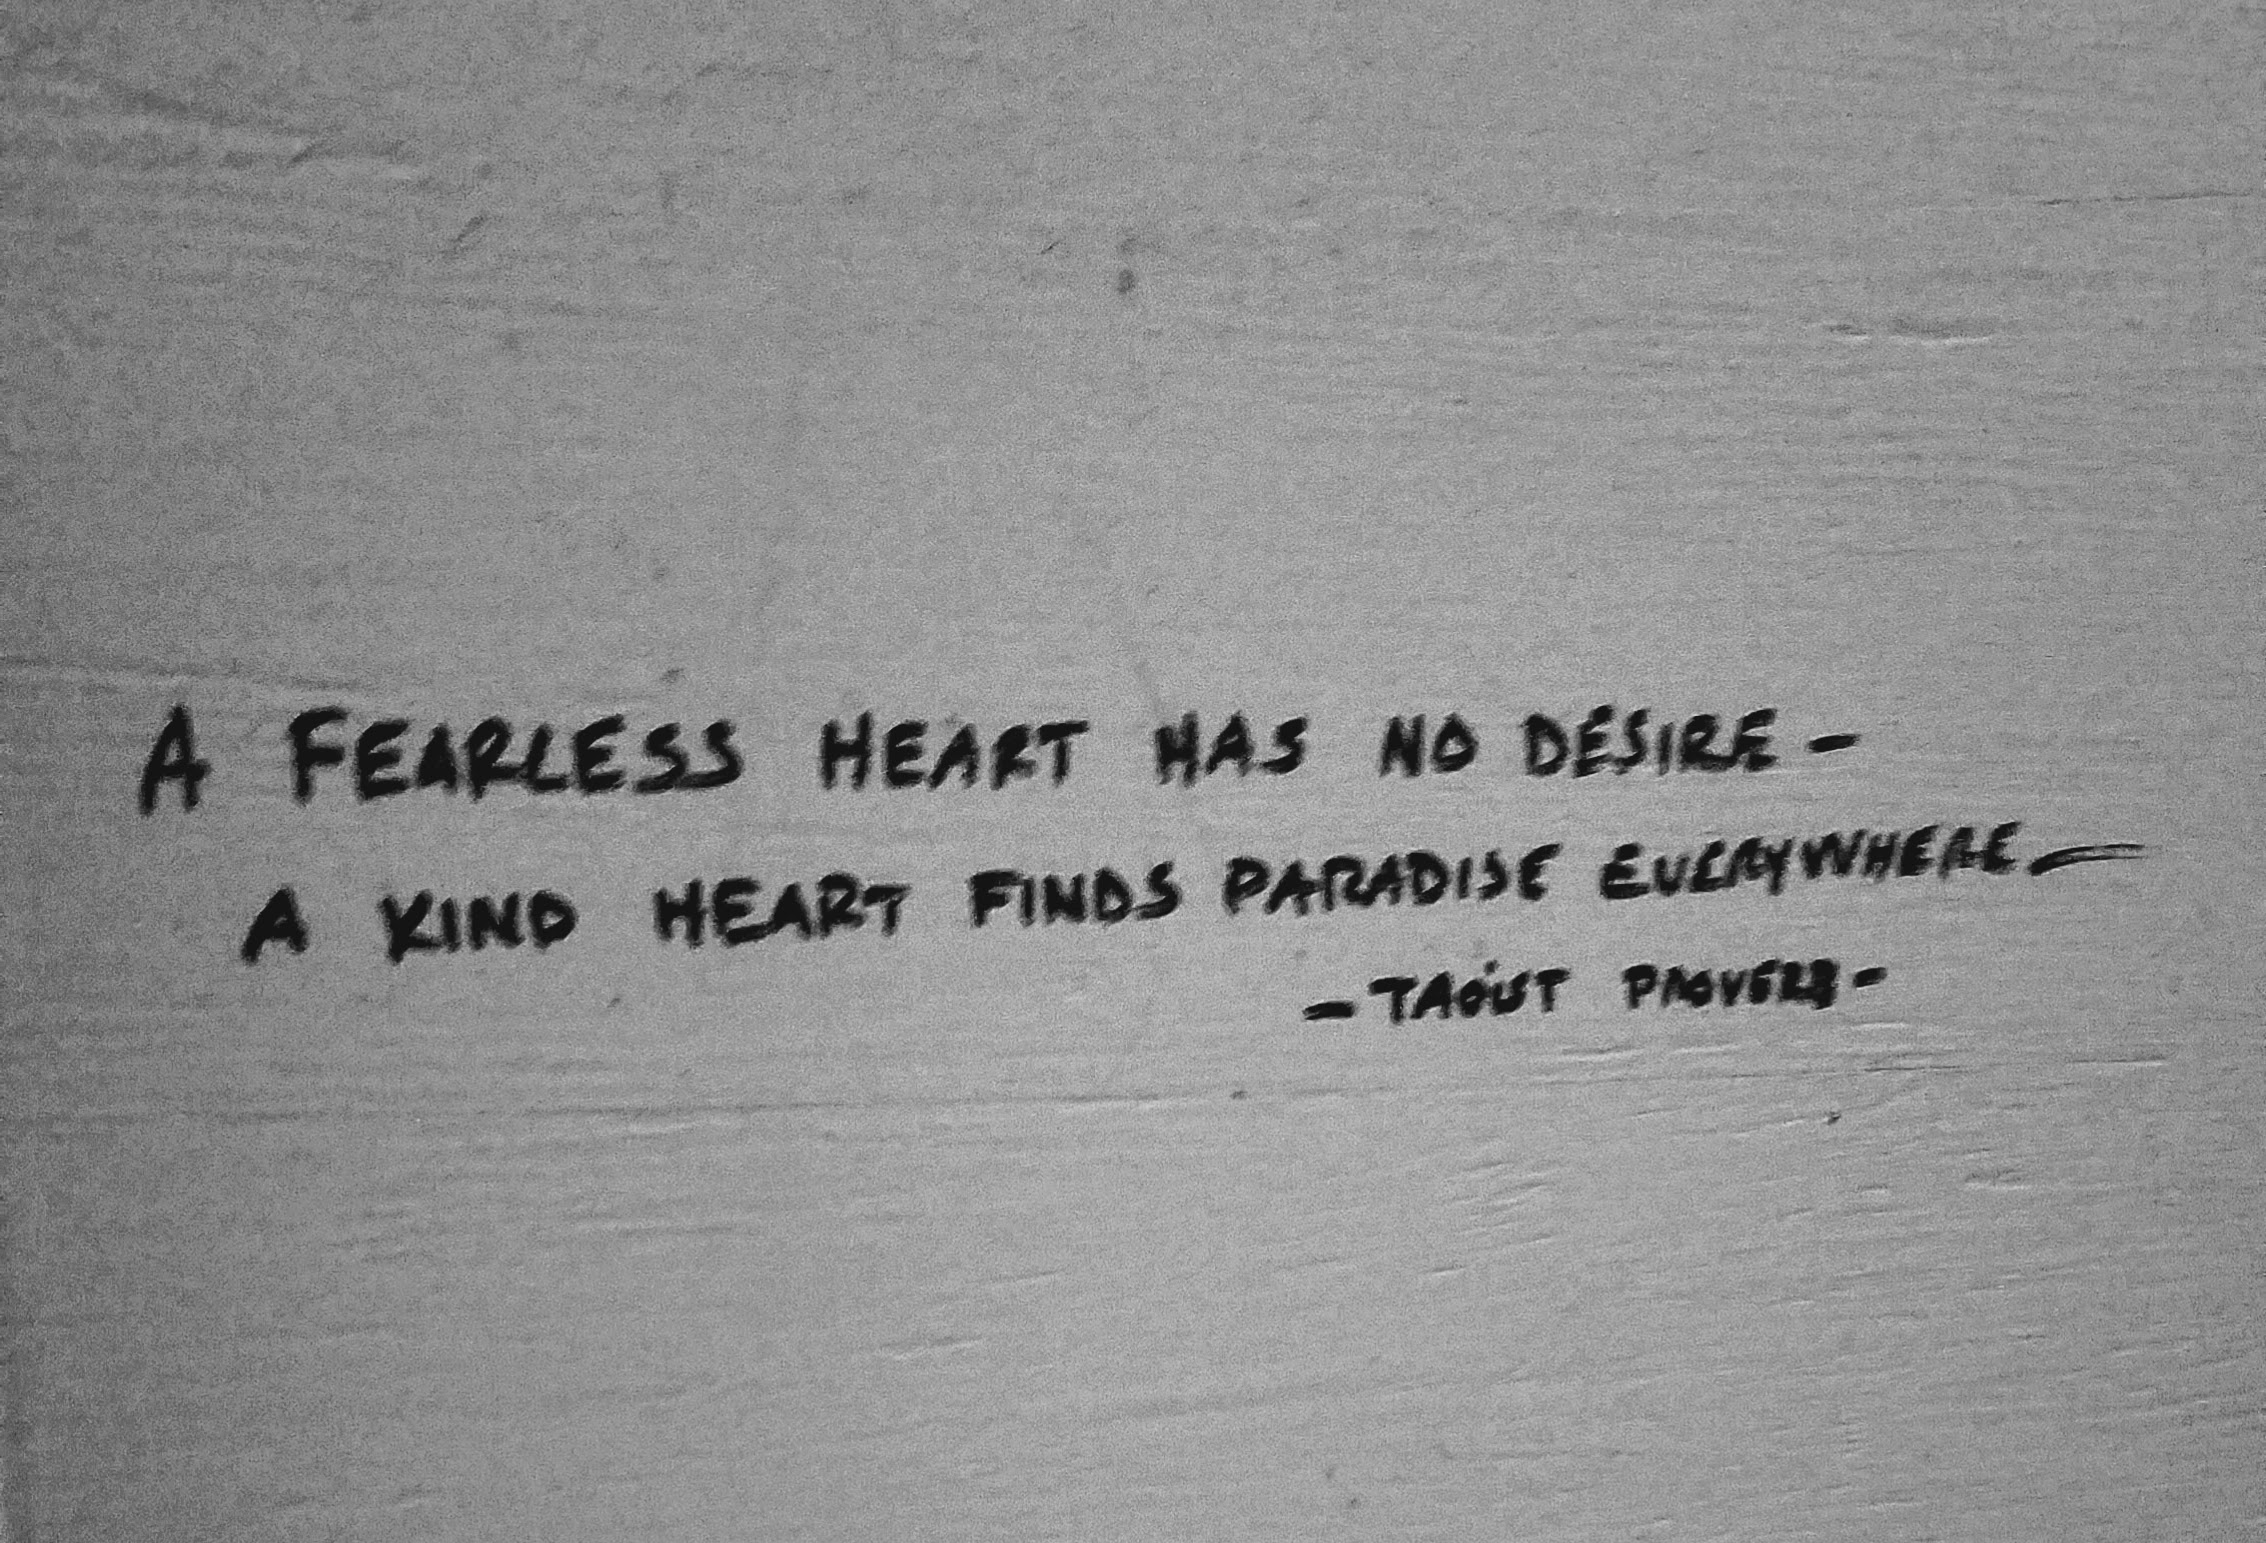 A FEARLESS HEART HAS NO DESIRE -
A KIND HEART FINDS PARADISE EVERYWHERE —
- TAOIST PROVERB -